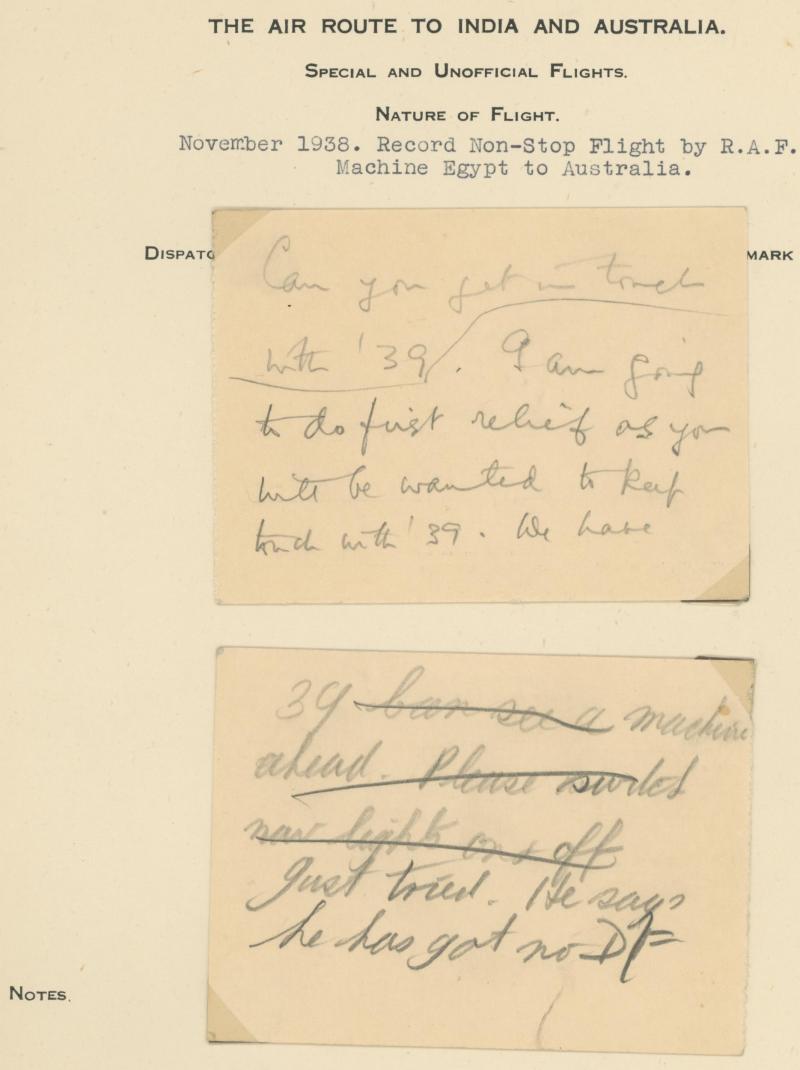 THE AIR ROUTE TO INDIA AND AUSTRALIA.
SPECIAL AND UNOFFICIAL FLIGHTS.
NATURE OF FLIGHT.
November 1938. Record Non-Stop Flight by R.A.F.
Machine Egypt to Australia.
DISPATC
MARK
Can you get in touch
with '39. I am going
to do first relief as you
will be wanted to keep
touch with '39. We have
39 can see a machine
ahead. Please switch
nav lights on & off
Just tried. He says
he has got no D/F
NOTES.